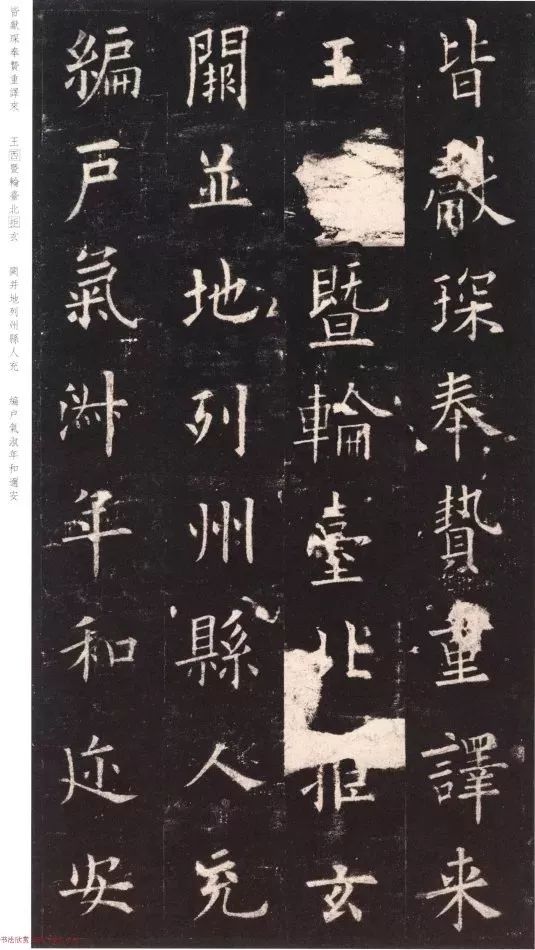 皆獻琛奉贄重譯来
王暨輪臺北拒玄
闕並地列州縣人充
編戶氣淑年和迩安
皆獻琛奉贄重譯來 王西暨輪臺北拒玄 闕并地列州縣人充 編户氣淑年和邇安
书法欣赏